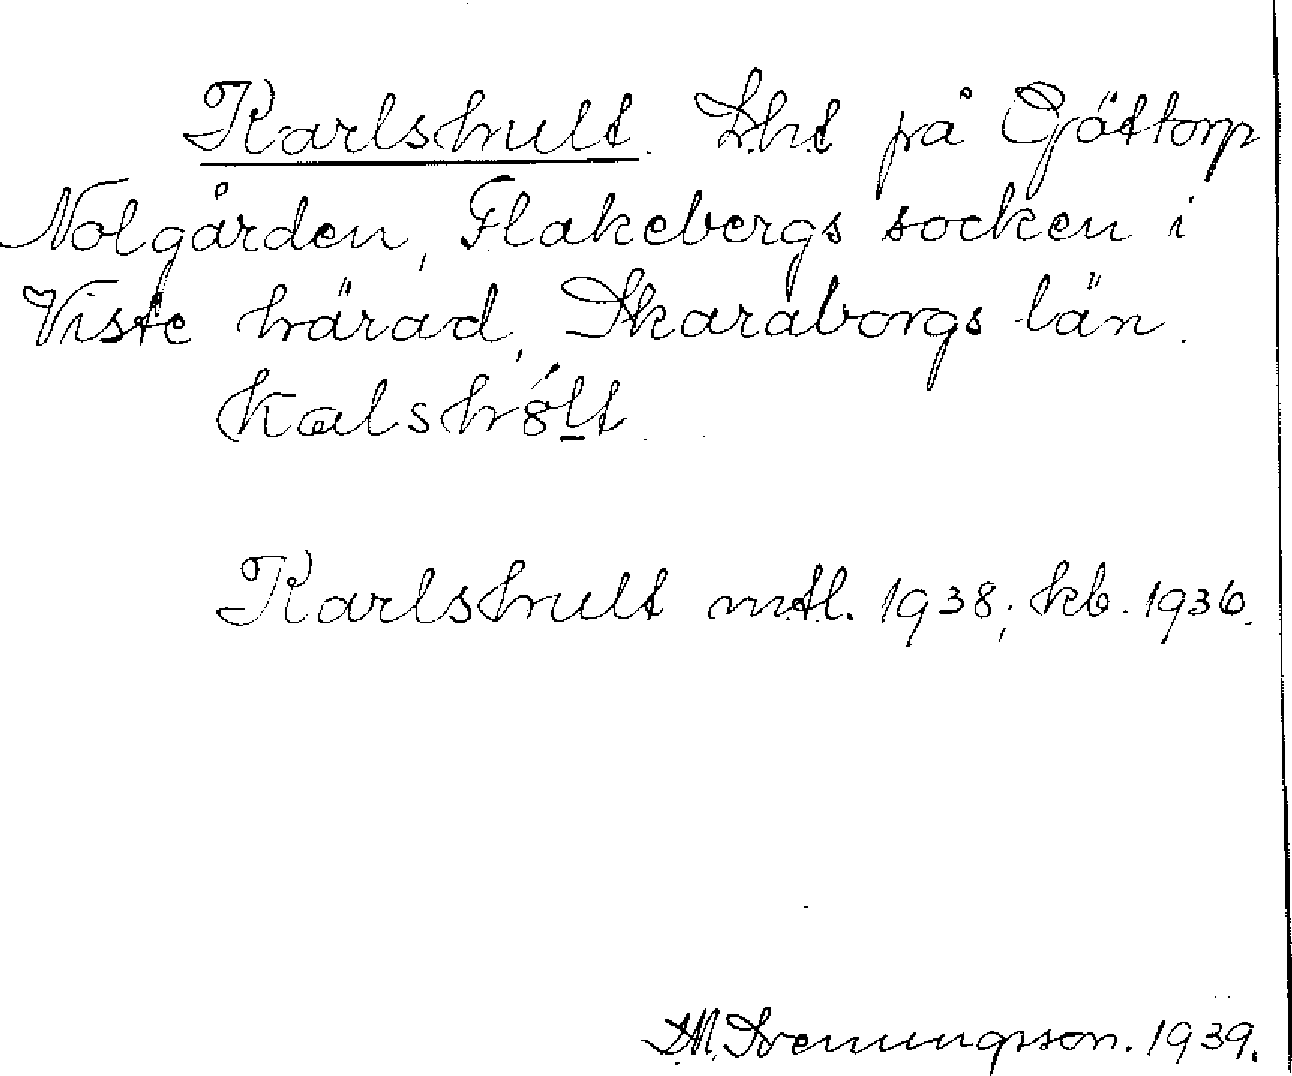 Karlshult. Lht på Gjöttorp
Nolgården, Flakebergs socken i
Viste härad, Skaraborgs län.
kalshólt.
Karlshult mtl. 1938; kb. 1936.
Svenungsson. 1939.